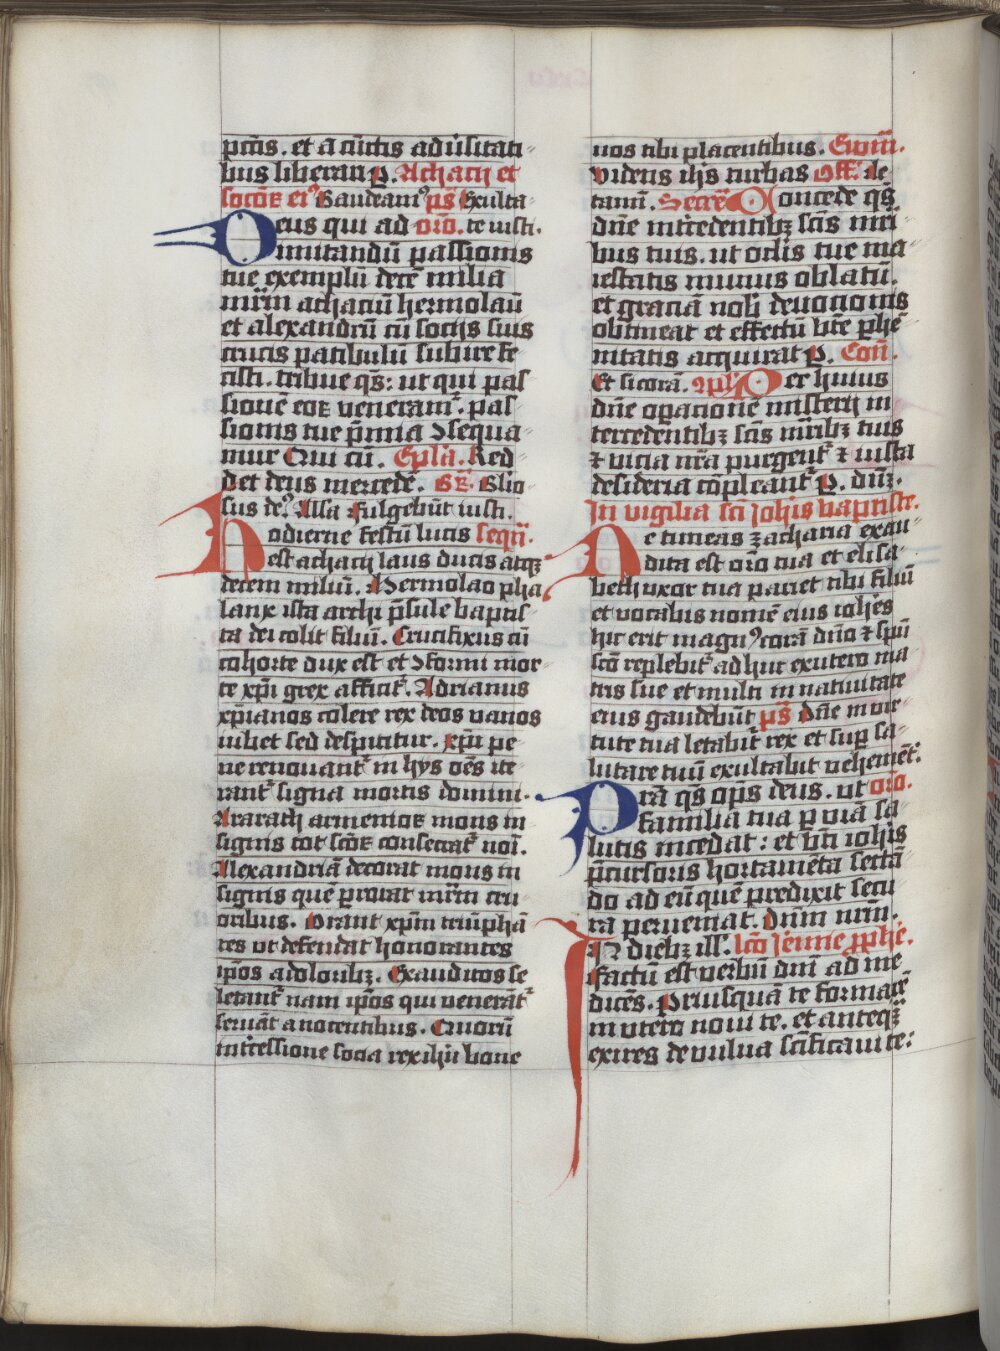 pctis. et a cūctis aduͥsitati
bus liberari ꝑ. Achacij et
socoꝝ eiꝰ Gaudeamꝰ p̄s Exulta
Deus qui ad oro. te iusti.
imitandū passionis
tue exemplū decē milia
mr̄m achaciū hermolaū
et alexandrū cū socijs suis
crucis patibulū subire fe
cisti. tribue qs̄: ut qui pas
sionē eoꝝ veneramͬ. pas
sionis tue p̄mia ꝯsequa
mur Qui cū. Epl̄a. Red
det deus mercedē. Gr̄. Glio
sus deꝰ Alla Fulgebūt iusti.
Hodierne festū lucis seqū.
est achacij laus ducis atqꝫ
decem miliū. Hermolao pha
lanx ista archi p̄sule baptis
ta dei colit filiū. Crucifixus cū
cohorte dux est et ꝯformi mor
te xp̄i grex afficitͬ. Adrianus
xp̄ianos colere rex deos vanos
iubet sed despicitur. xp̄i pe
ne renouantͬ in hys oēs ite
rantͬ signa mortis domini.
Ararath armenioꝝ mons in
signis tot scōꝝ consecratͬ noī.
Alexandriā decorat mons in
signis quē ꝓuocat mr̄m cru
oribus. Orant xp̄m triūphā
tes vt defendat honorantes
ip̄os a doloribꝫ. Exauditos se
letantͬ nam ip̄os qui venerātͬ
seruāt a nocentibus. Quorū
int̄cessione socia rex ih̄u bone
nos tibi placentibus. Ewm̄.
Videns ih̄s turbas Off̄. le
tamī. Secre᷒ Concede qs̄
dn̄e int̄cedentibꝫ scīs mri
bus tuis. ut oclis tue ma
iestatis munus oblatū.
et graciā nob̄ deuocionis
obtineat et effectū bt̄e phē
nitatis acquirat ꝑ. Com̄.
Et si corā. 9pl̄ Per huius
dn̄e oꝑacionē misterij in
tercedentibꝫ scīs mr̄ibꝫ tuis
⁊ vicia nr̄a purgentͬ ⁊ iusta
desideria cōpleantͬ ꝑ. dn̄ꝫ.
In vigilia sc̄i ioh̄is baptiste.
Ne timeas zacharia exau
dita est oro tua et elisa
beth vxor tua pariet tibi filiū
et vocabis nomē eius ioh̄es
hic erit magnꝰ corā dn̄o ⁊ spū
scō replebitͬ adhuc ex utero ma
tris sue et multi in natiuitate
eius gaudebūt p̄s Dn̄e in vir
tute tua letabitͬ rex et suꝑ sa
lutare tuū exultabit vehemēt.
Pr̄a qs̄ op̄s deus. ut oro.
familia tua ꝑ viā sa
lutis incedat: et bt̄i ioh̄is
p̄cursoris hortamēta sectā
do ad eū quē predixit secu
ra perueniat. Dn̄m nr̄m.
In diebꝫ ill᷒. lcō Jeremie ꝓphe.
Factū est verbū dn̄i ad me
dicēs. Priusquā te formarē
in vtero noui te. et anteqꝫ
exires de vulua scīficaui te: